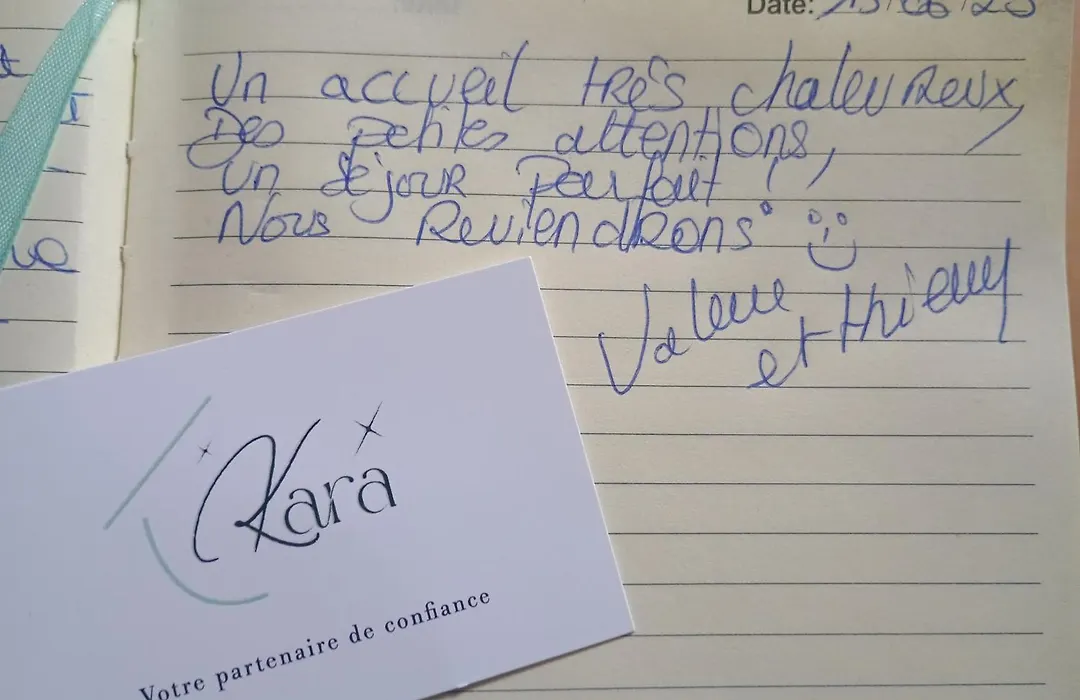 Date:
Un accueil très chaleureux,
Des petites attentions,
un séjour parfait !,
Nous Reviendrons
et thierry
Kara
Votre partenaire de confiance